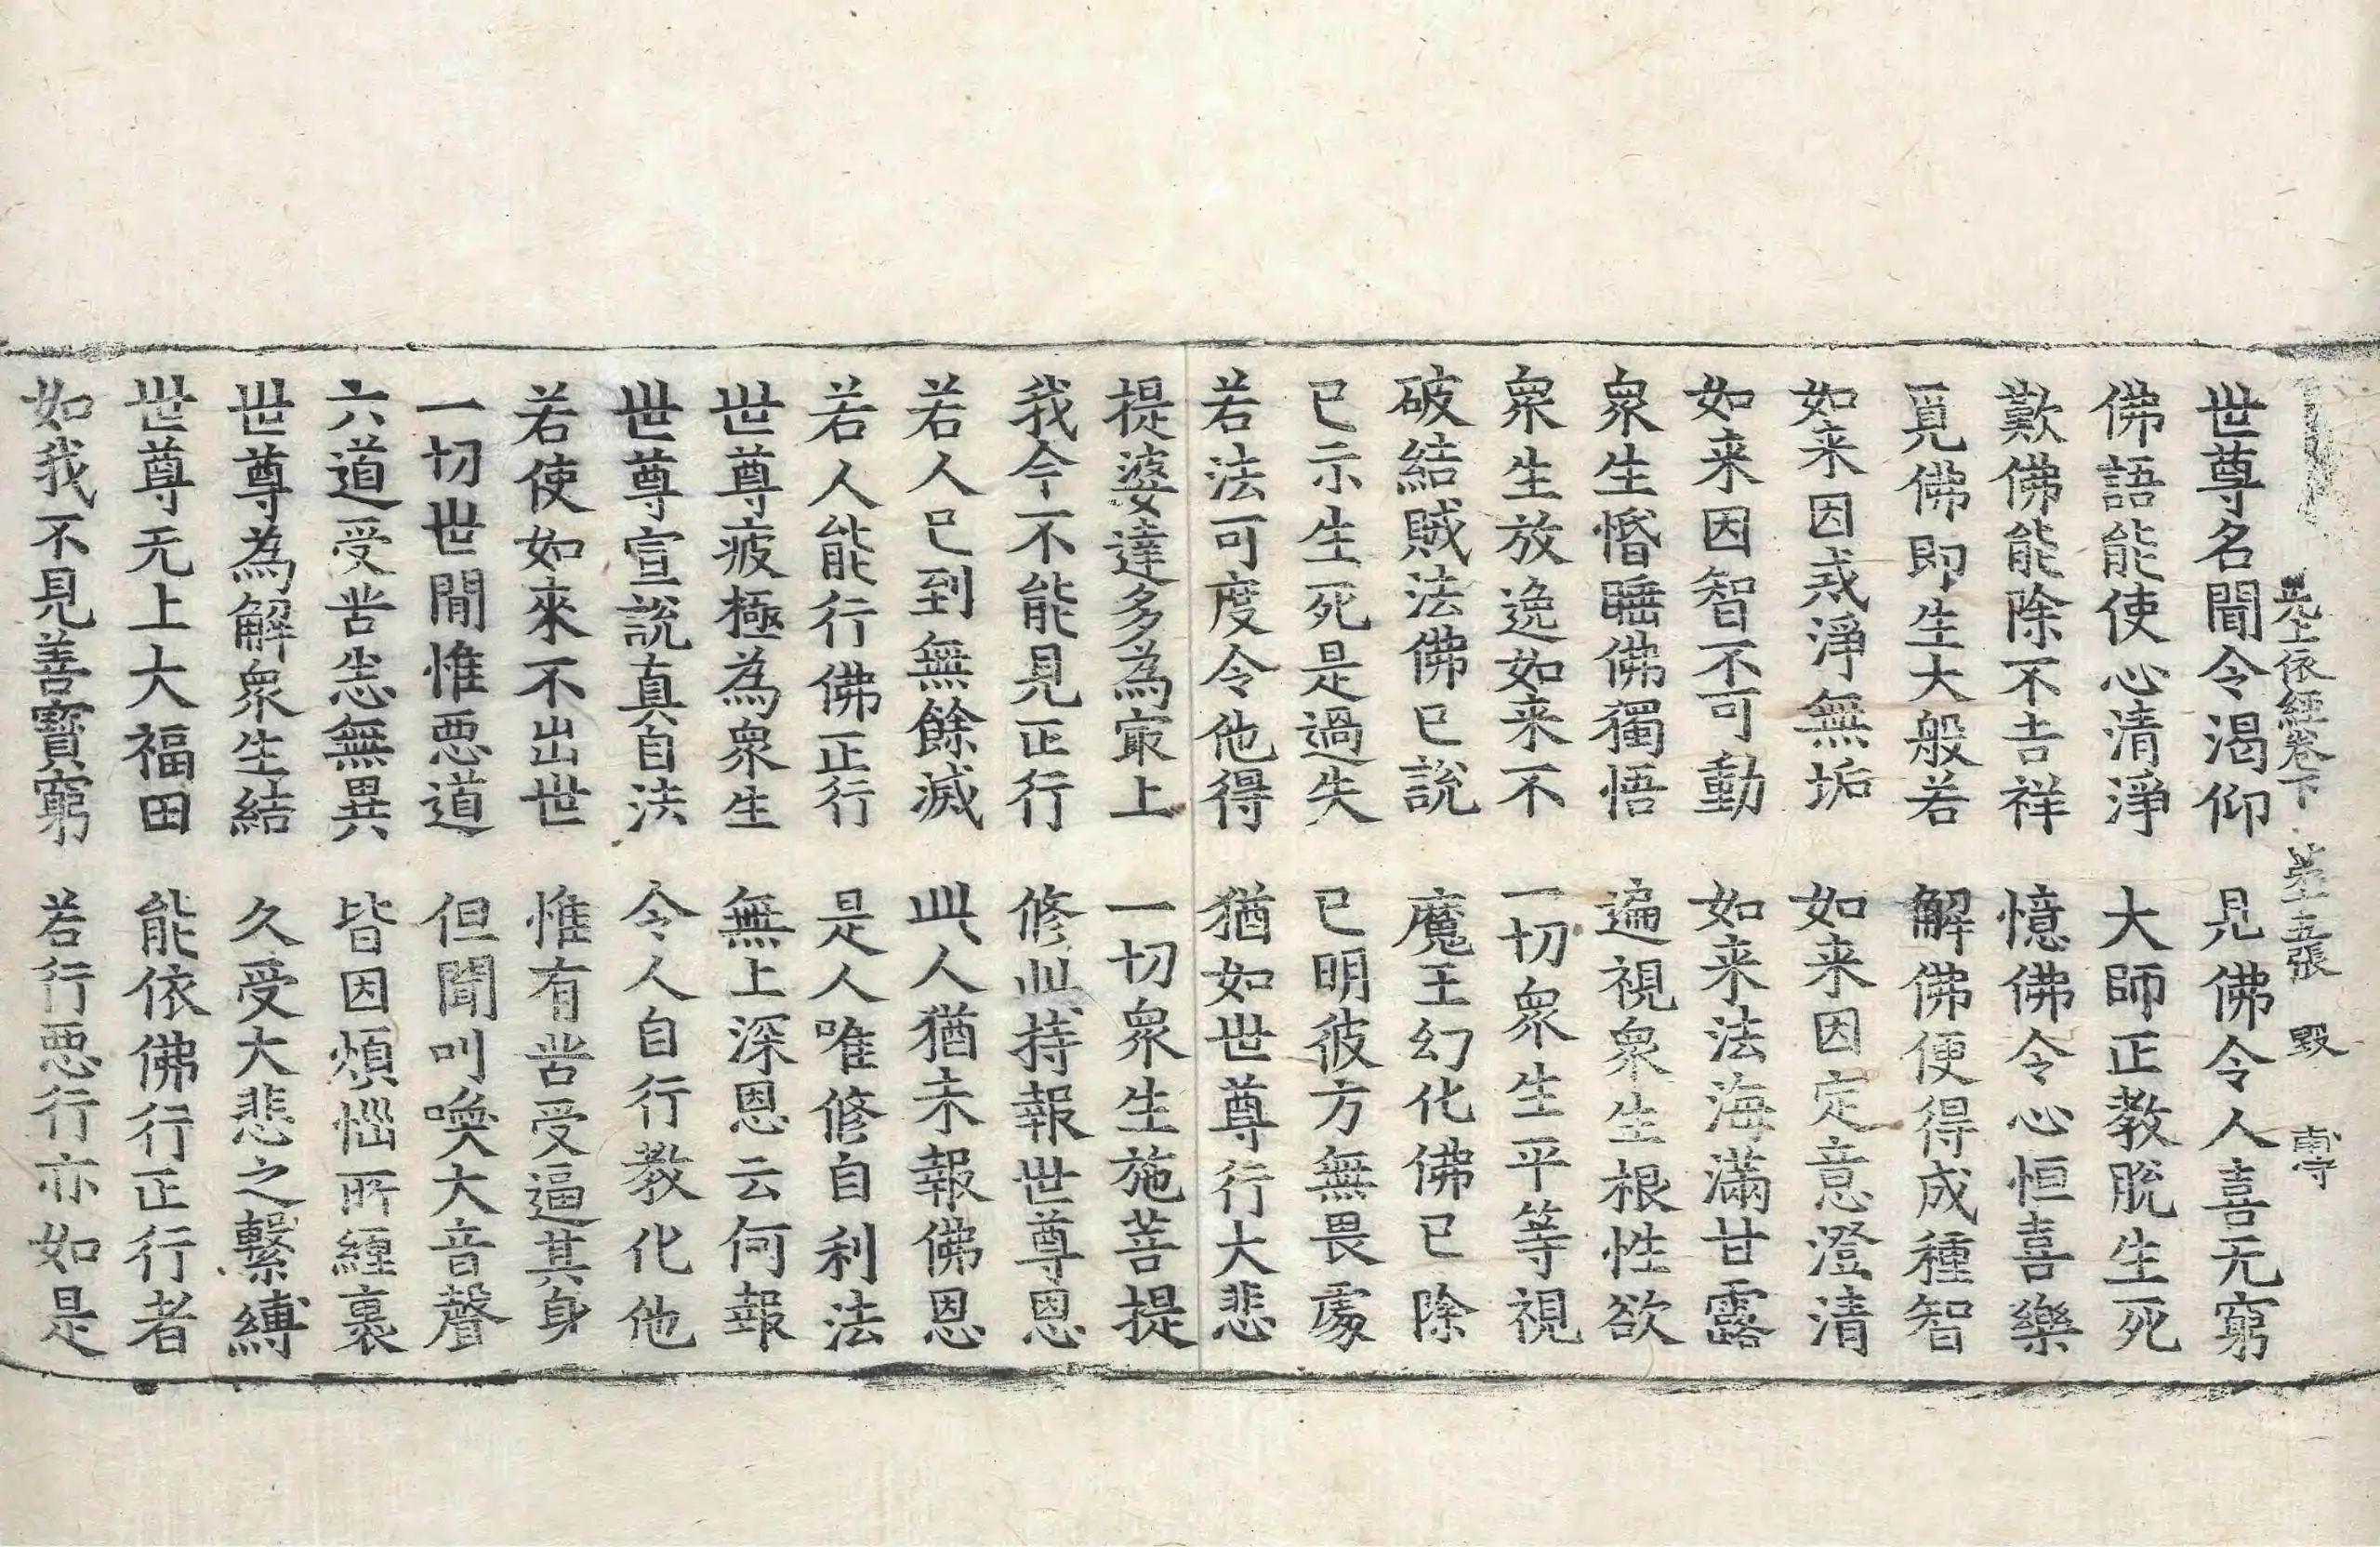 无上依經卷下 苐五張 毀 専
世尊名聞令渴仰 見佛令人喜无窮
佛語能使心清淨 大師正教脫生死
歎佛能除不吉祥 憶佛令心恒喜樂
覓佛即生大般若 解佛便得成種智
如来因戎淨無垢 如来因定意澄清
如来因智不可動 如来法海滿甘露
衆生惛睡佛獨悟 遍視衆生根性欲
衆生放逸如来不 一切衆生平等視
破結賊法佛已說 魔王幻化佛已除
已示生死是過失 已明彼方無畏處
若法可度令他得 猶如世尊行大悲
提婆達多為冣上 一切衆生施菩提
我今不能見正行 修此持報世尊恩
若人已到無餘滅 此人猶未報佛恩
若人能行佛正行 是人唯修自利法
世尊疲極為衆生 無上深恩云何報
世尊宣說真自法 令人自行教化他
若使如來不出世 惟有苦受逼其身
一切世間惟惡道 但聞叫喚大音聲
六道受苦恙無異 皆因煩惱所纏裹
世尊為解衆生結 久受大悲之繫縛
世尊无上大福田 能依佛行正行者
如我不見善寳窮 若行惡行亦如是